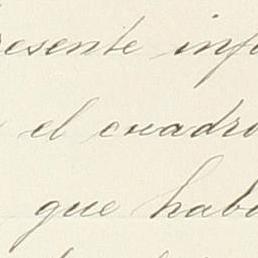 resente info
el cuadro
que habi